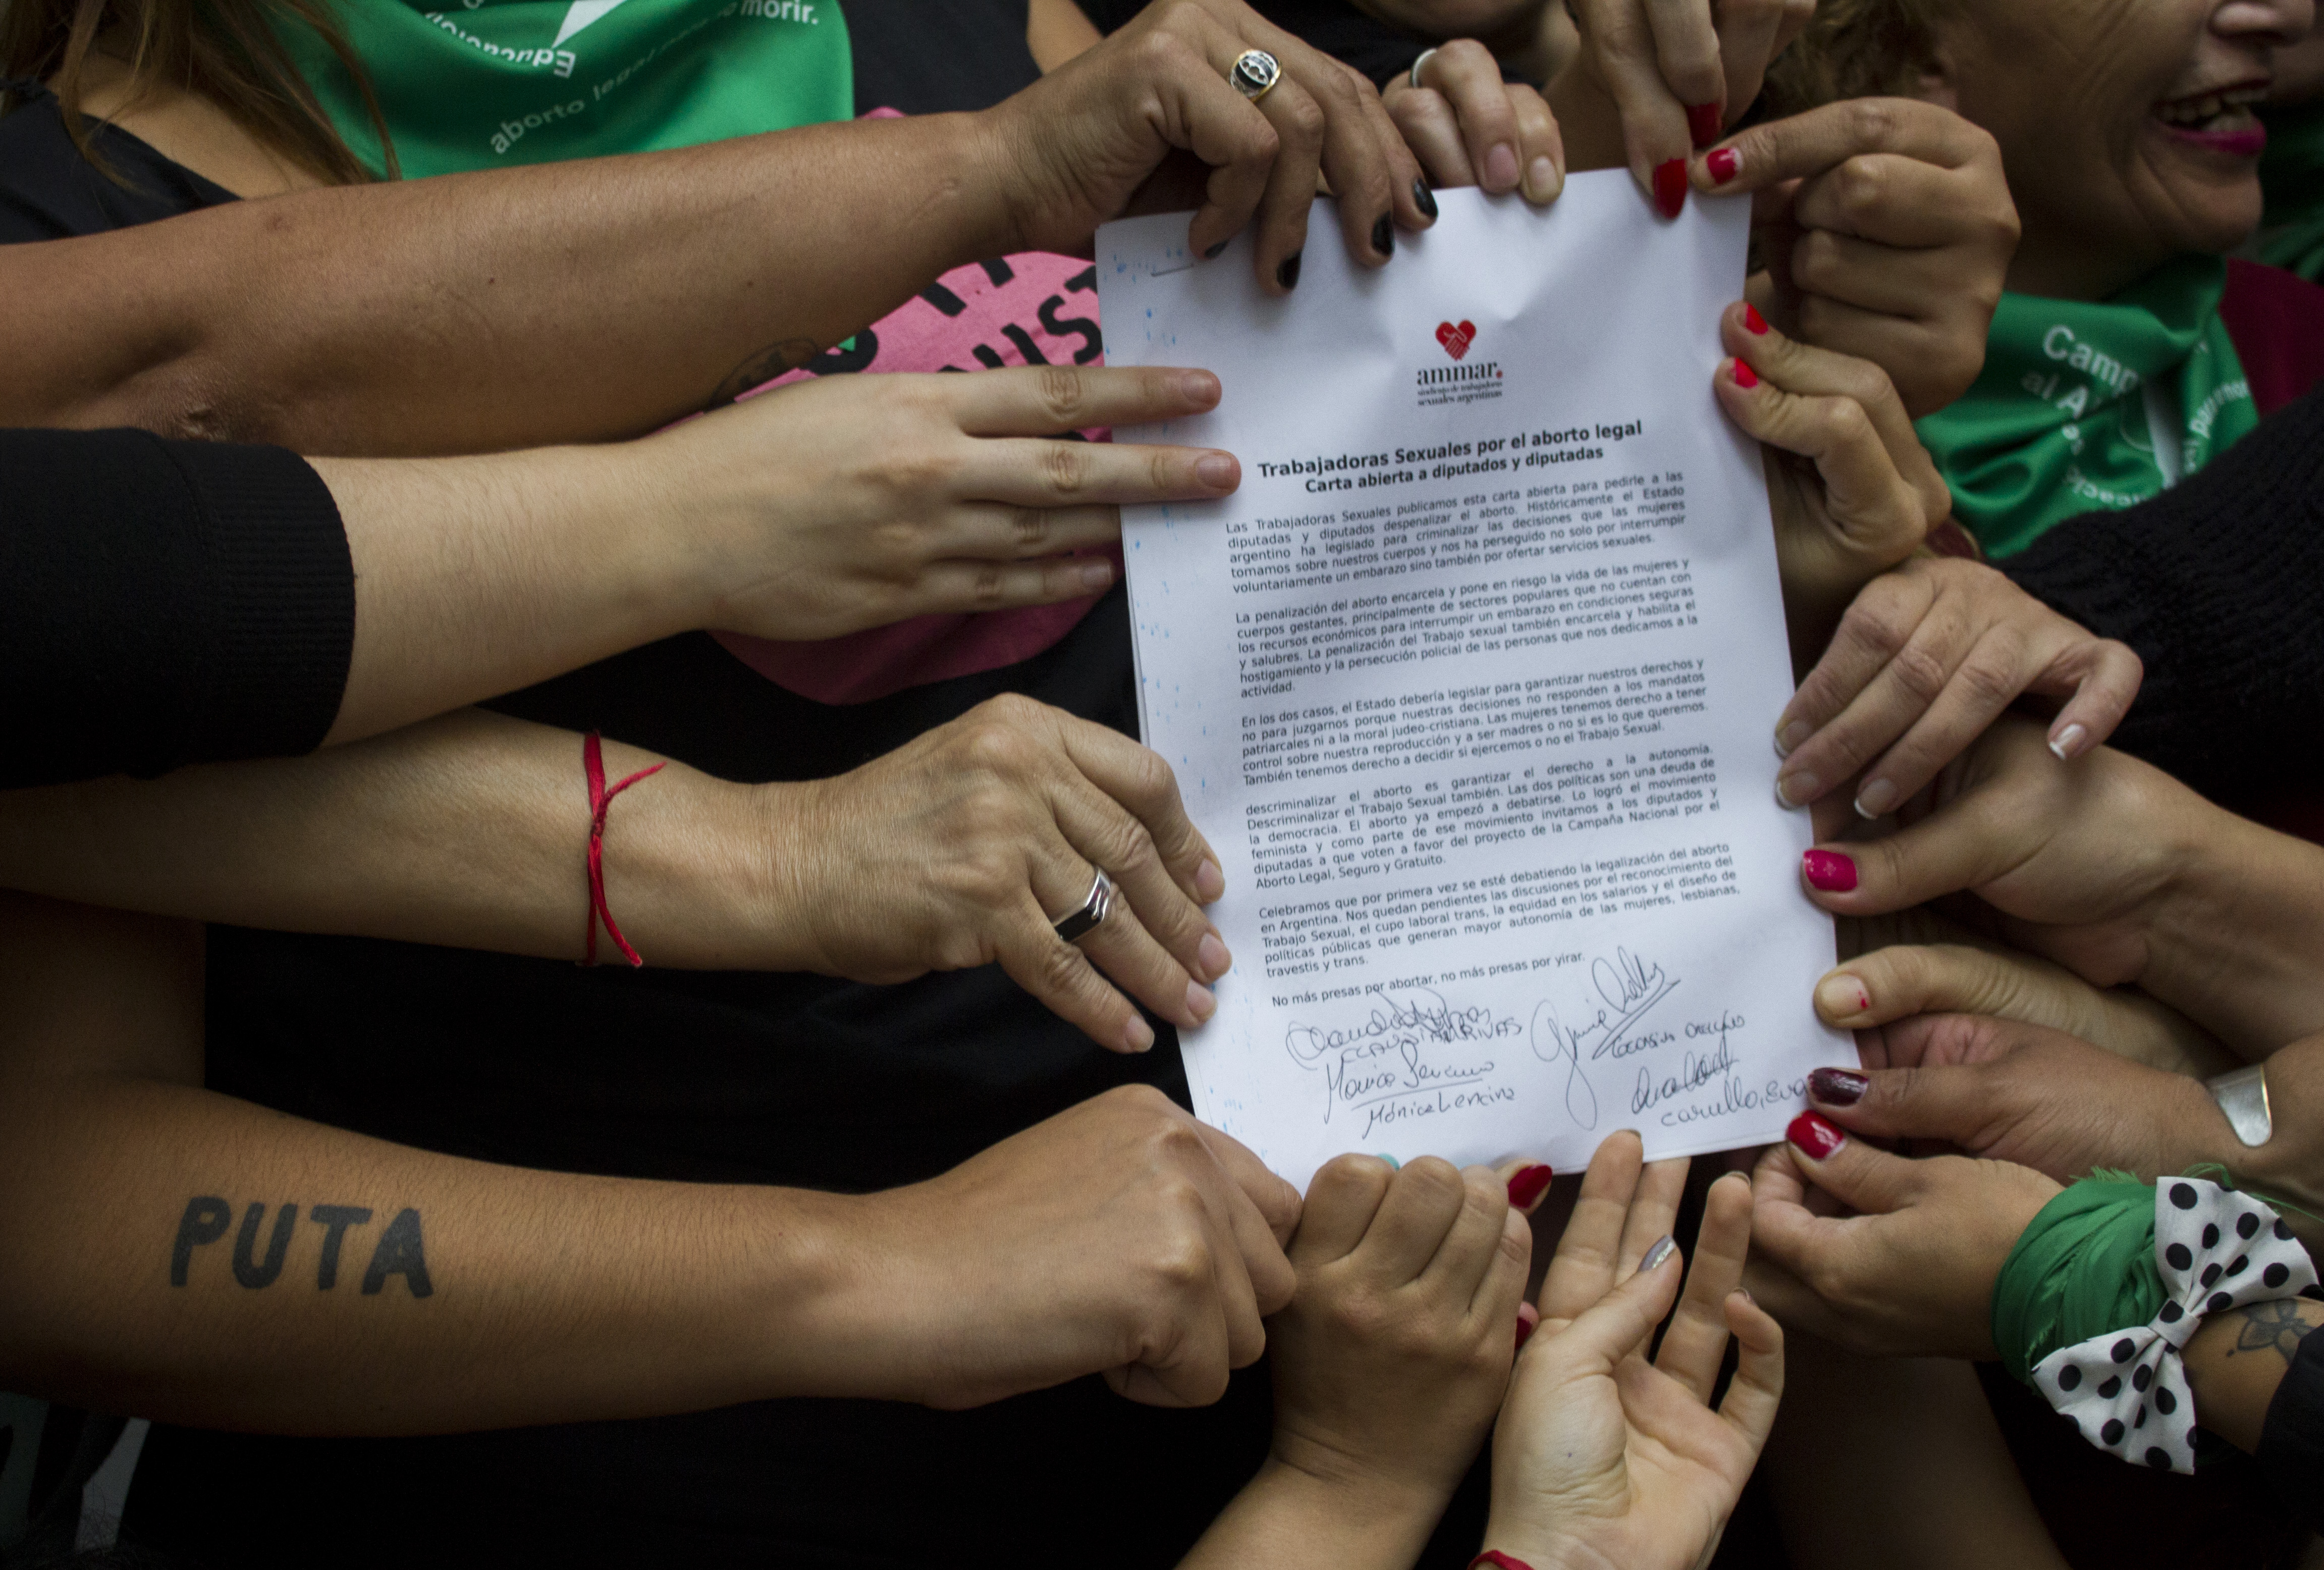 morir.
Educación
aborto legal para no
UST
ammar.
sindicato de trabajadoras
sexuales argentinas
Trabajadoras Sexuales por el aborto legal
Carta abierta a diputados y diputadas
Las Trabajadoras Sexuales publicamos esta carta abierta para pedirle a las
diputadas y diputados despenalizar el aborto. Históricamente el Estado
argentino ha legislado para criminalizar las decisiones que las mujeres
tomamos sobre nuestros cuerpos y nos ha perseguido no solo por interrumpir
voluntariamente un embarazo sino también por ofertar servicios sexuales.
La penalización del aborto encarcela y pone en riesgo la vida de las mujeres y
cuerpos gestantes, principalmente de sectores populares que no cuentan con
los recursos económicos para interrumpir un embarazo en condiciones seguras
y salubres. La penalización del Trabajo sexual también encarcela y habilita el
hostigamiento y la persecución policial de las personas que nos dedicamos a la
actividad.
En los dos casos, el Estado debería legislar para garantizar nuestros derechos y
no para juzgarnos porque nuestras decisiones no responden a los mandatos
patriarcales ni a la moral judeo-cristiana. Las mujeres tenemos derecho a tener
control sobre nuestra reproducción y a ser madres o no si es lo que queremos.
También tenemos derecho a decidir si ejercemos o no el Trabajo Sexual.
descriminalizar el aborto es garantizar el derecho a la autonomía.
Descriminalizar el Trabajo Sexual también. Las dos políticas son una deuda de
la democracia. El aborto ya empezó a debatirse. Lo logró el movimiento
feminista y como parte de ese movimiento invitamos a los diputados y
diputadas a que voten a favor del proyecto de la Campaña Nacional por el
Aborto Legal, Seguro y Gratuito.
Celebramos que por primera vez se esté debatiendo la legalización del aborto
en Argentina. Nos quedan pendientes las discusiones por el reconocimiento del
Trabajo Sexual, el cupo laboral trans, la equidad en los salarios y el diseño de
políticas públicas que generan mayor autonomía de las mujeres, lesbianas,
travestis y trans.
No más presas por abortar, no más presas por yirar.
Mónica Lencina
Carullo, Eva
Camp
al A
para
PUTA